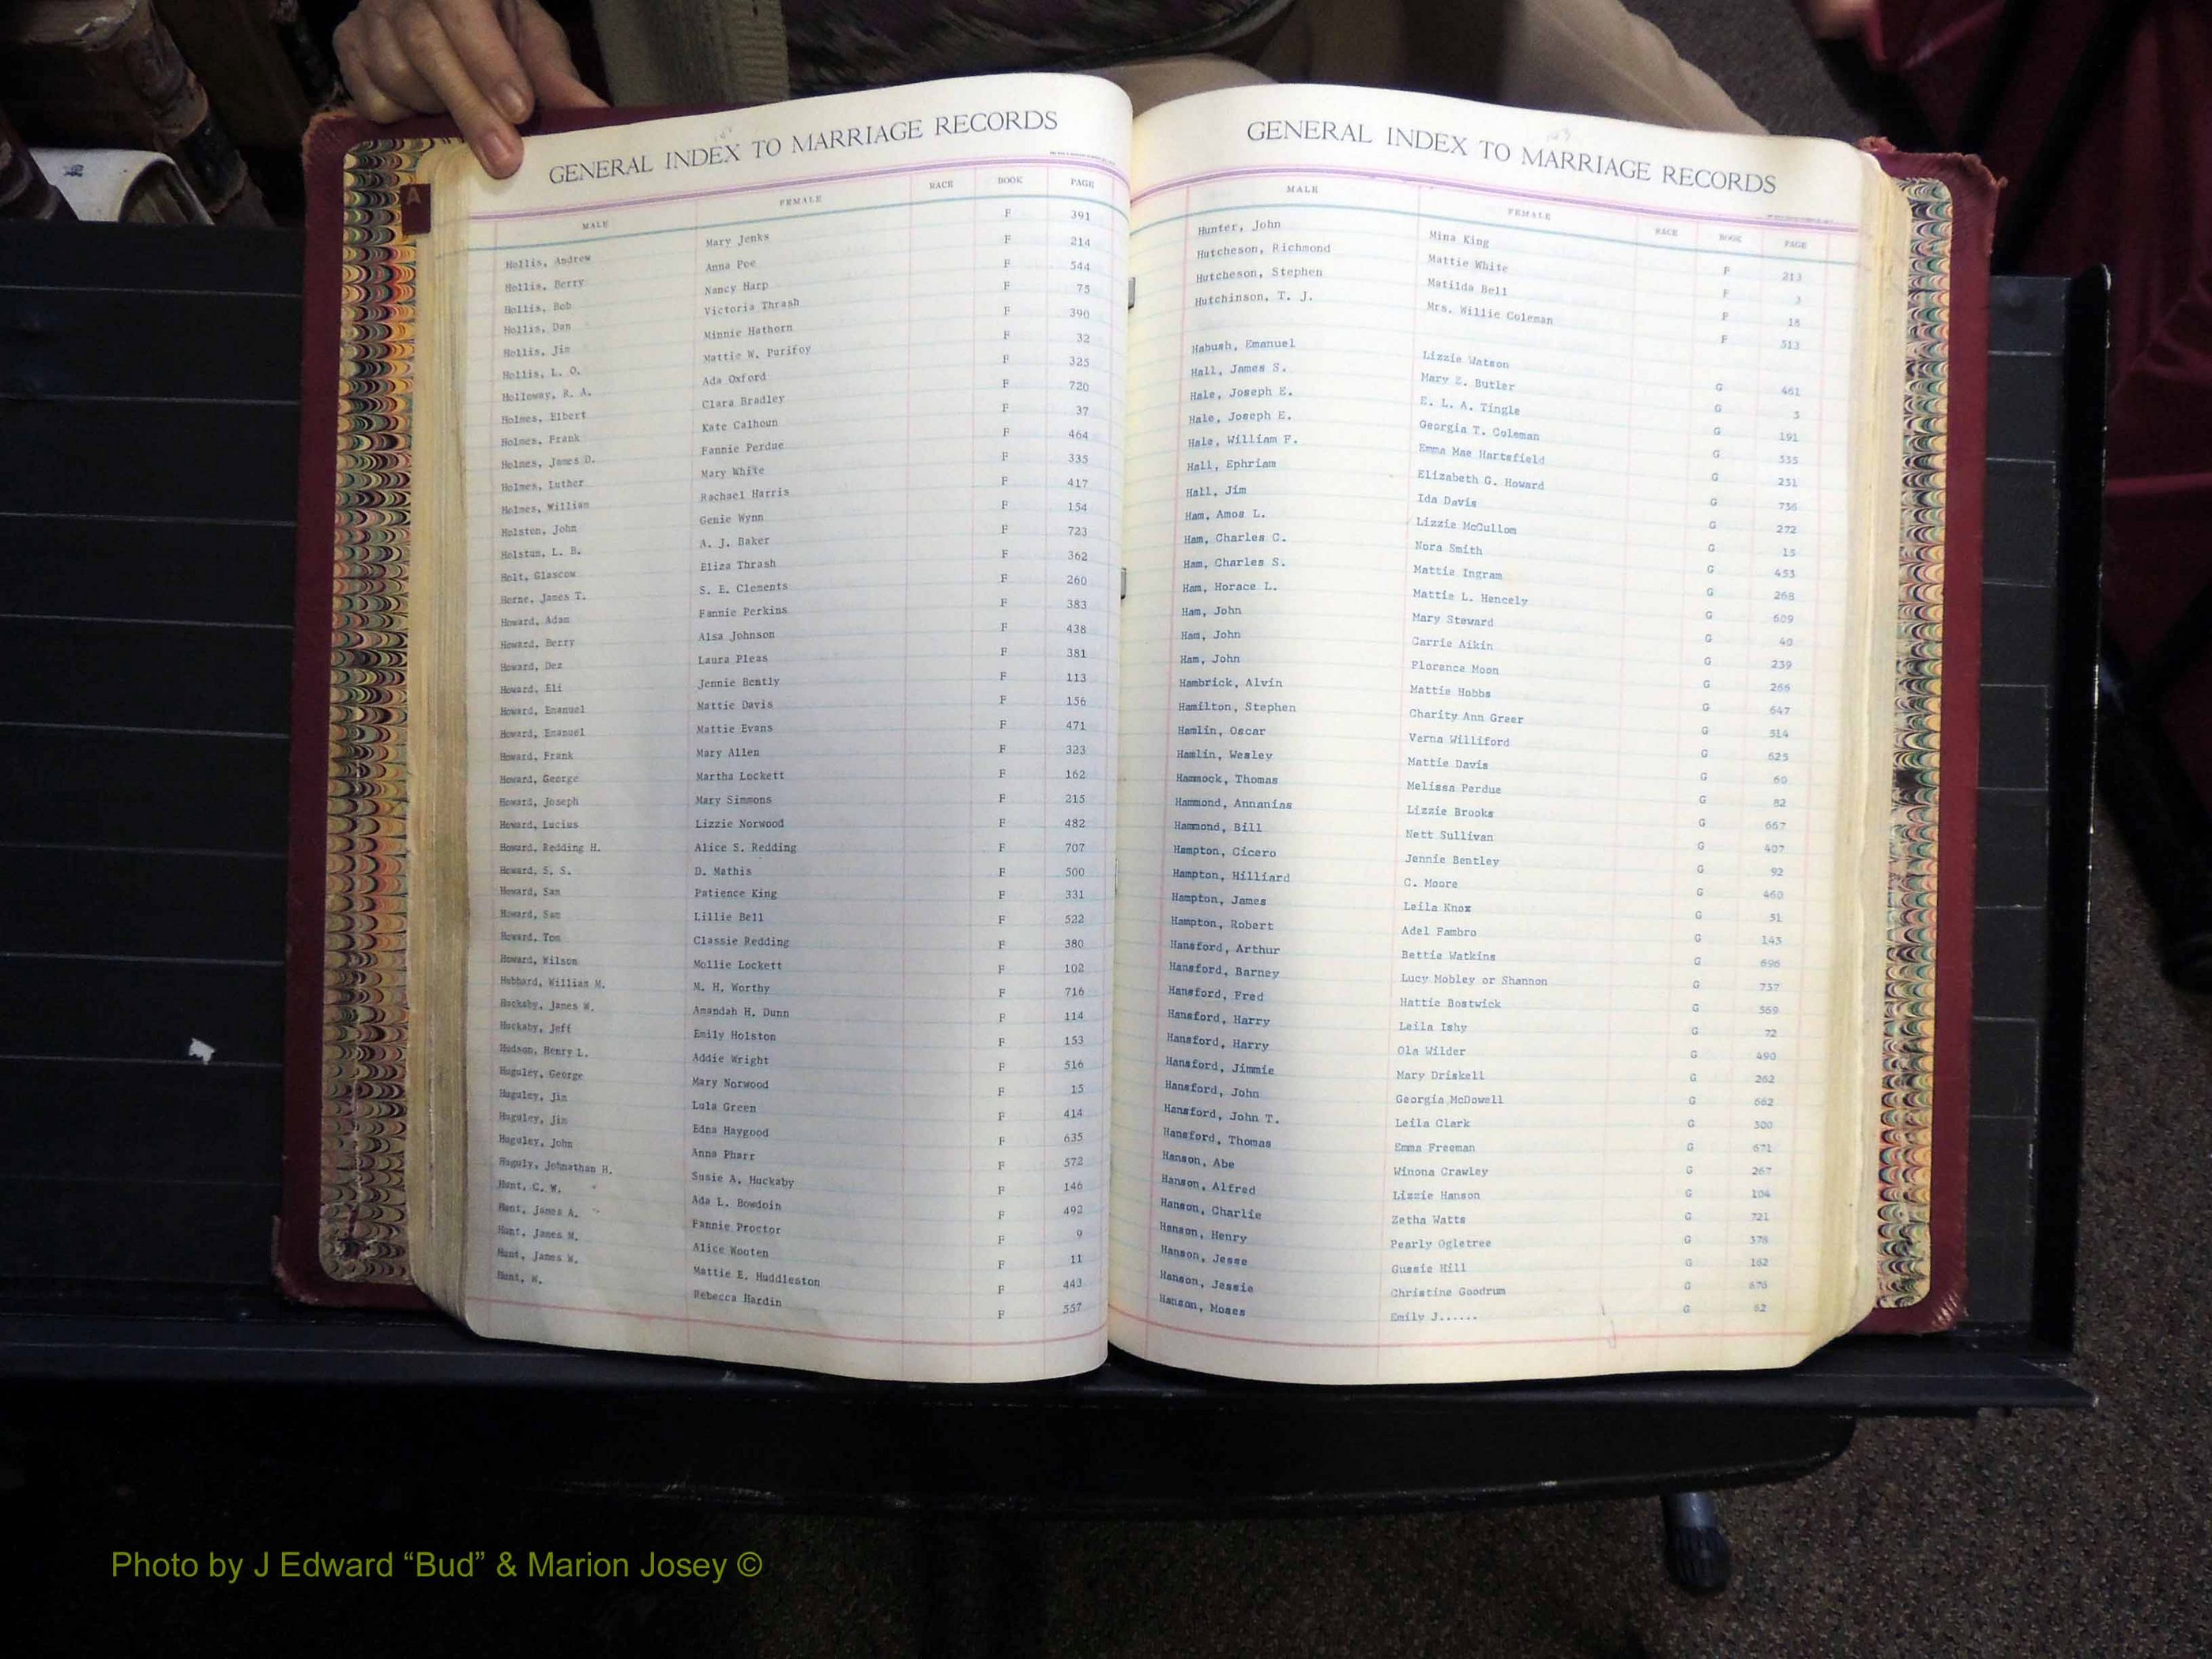 GENERAL INDEX TO MARRIAGE RECORDS
MALE FEMALE RACE BOOK PAGE
Hollis, Andrew Mary Jenks F 391
Hollis, Berry Anna Poe F 214
Hollis, Bob Nancy Harp F 544
Hollis, Dan Victoria Thrash F 75
Hollis, Jim Minnie Hathorn F 390
Hollis, L. O. Mattie W. Purifoy F 32
Holloway, R. A. Ada Oxford F 325
Holmes, Elbert Clara Bradley F 720
Holmes, Frank Kate Calhoun F 37
Holmes, James D. Fannie Perdue F 464
Holmes, Luther Mary White F 335
Holmes, William Rachael Harris F 417
Holston, John Genie Wynn F 154
Holstun, L. B. A. J. Baker F 723
Holt, Glascow Eliza Thrash F 362
Horne, James T. S. E. Clements F 260
Howard, Adam Fannie Perkins F 383
Howard, Berry Alsa Johnson F 438
Howard, Dez Laura Pleas F 381
Howard, Eli Jennie Bently F 113
Howard, Emanuel Mattie Davis F 156
Howard, Emanuel Mattie Evans F 471
Howard, Frank Mary Allen F 323
Howard, George Martha Lockett F 162
Howard, Joseph Mary Simmons F 215
Howard, Lucius Lizzie Norwood F 482
Howard, Redding H. Alice S. Redding F 707
Howard, S. S. D. Mathis F 500
Howard, Sam Patience King F 331
Howard, Sam Lillie Bell F 522
Howard, Tom Classie Redding F 380
Howard, Wilson Mollie Lockett F 102
Hubbard, William M. M. H. Worthy F 716
Huckaby, James W. Amandah H. Dunn F 114
Huckaby, Jeff Emily Holston F 153
Hudson, Henry L. Addie Wright F 516
Huguley, George Mary Norwood F 15
Huguley, Jim Lula Green F 414
Huguley, Jim Edna Haygood F 635
Huguley, John Anna Pharr F 572
Huguly, Johnathan H. Susie A. Huckaby F 146
Hunt, C. W. Ada L. Bowdoin F 492
Hunt, James A. Fannie Proctor F 9
Hunt, James M. Alice Wooten F 11
Hunt, James W. Mattie E. Huddleston F 443
Hunt, W. Rebecca Hardin F 557
GENERAL INDEX TO MARRIAGE RECORDS
MALE FEMALE RACE BOOK PAGE
Hunter, John Mina King F 213
Hutcheson, Richmond Mattie White F 3
Hutcheson, Stephen Matilda Bell F 18
Hutchinson, T. J. Mrs. Willie Coleman F 513
Habush, Emanuel Lizzie Watson G 461
Hall, James S. Mary Z. Butler G 5
Hale, Joseph E. E. L. A. Tingle G 191
Hale, Joseph E. Georgia T. Coleman G 335
Hale, William F. Emma Mae Hartsfield G 231
Hall, Ephriam Elizabeth G. Howard G 736
Hall, Jim Ida Davis G 272
Ham, Amos L. Lizzie McCullom G 15
Ham, Charles C. Nora Smith G 453
Ham, Charles S. Mattie Ingram G 268
Ham, Horace L. Mattie L. Hencely G 609
Ham, John Mary Steward G 40
Ham, John Carrie Aikin G 239
Ham, John Florence Moon G 266
Hambrick, Alvin Mattie Hobbs G 647
Hamilton, Stephen Charity Ann Greer G 514
Hamlin, Oscar Verna Williford G 625
Hamlin, Wesley Mattie Davis G 60
Hammock, Thomas Melissa Perdue G 82
Hammond, Annanias Lizzie Brooks G 667
Hammond, Bill Nett Sullivan G 407
Hampton, Cicero Jennie Bentley G 92
Hampton, Hilliard C. Moore G 460
Hampton, James Leila Knox G 51
Hampton, Robert Adel Fambro G 143
Hansford, Arthur Bettie Watkins G 696
Hansford, Barney Lucy Mobley or Shannon G 737
Hansford, Fred Hattie Bostwick G 569
Hansford, Harry Leila Ishy G 72
Hansford, Harry Ola Wilder G 490
Hansford, Jimmie Mary Driskell G 262
Hansford, John Georgia McDowell G 662
Hansford, John T. Leila Clark G 300
Hansford, Thomas Emma Freeman G 671
Hanson, Abe Winona Crawley G 267
Hanson, Alfred Lizzie Hanson G 104
Hanson, Charlie Zetha Watts G 721
Hanson, Henry Pearly Ogletree G 378
Hanson, Jesse Gussie Hill G 162
Hanson, Jessie Christine Goodrum G 676
Hanson, Moses Emily J...... G 62
A
Photo by J Edward “Bud” & Marion Josey ©